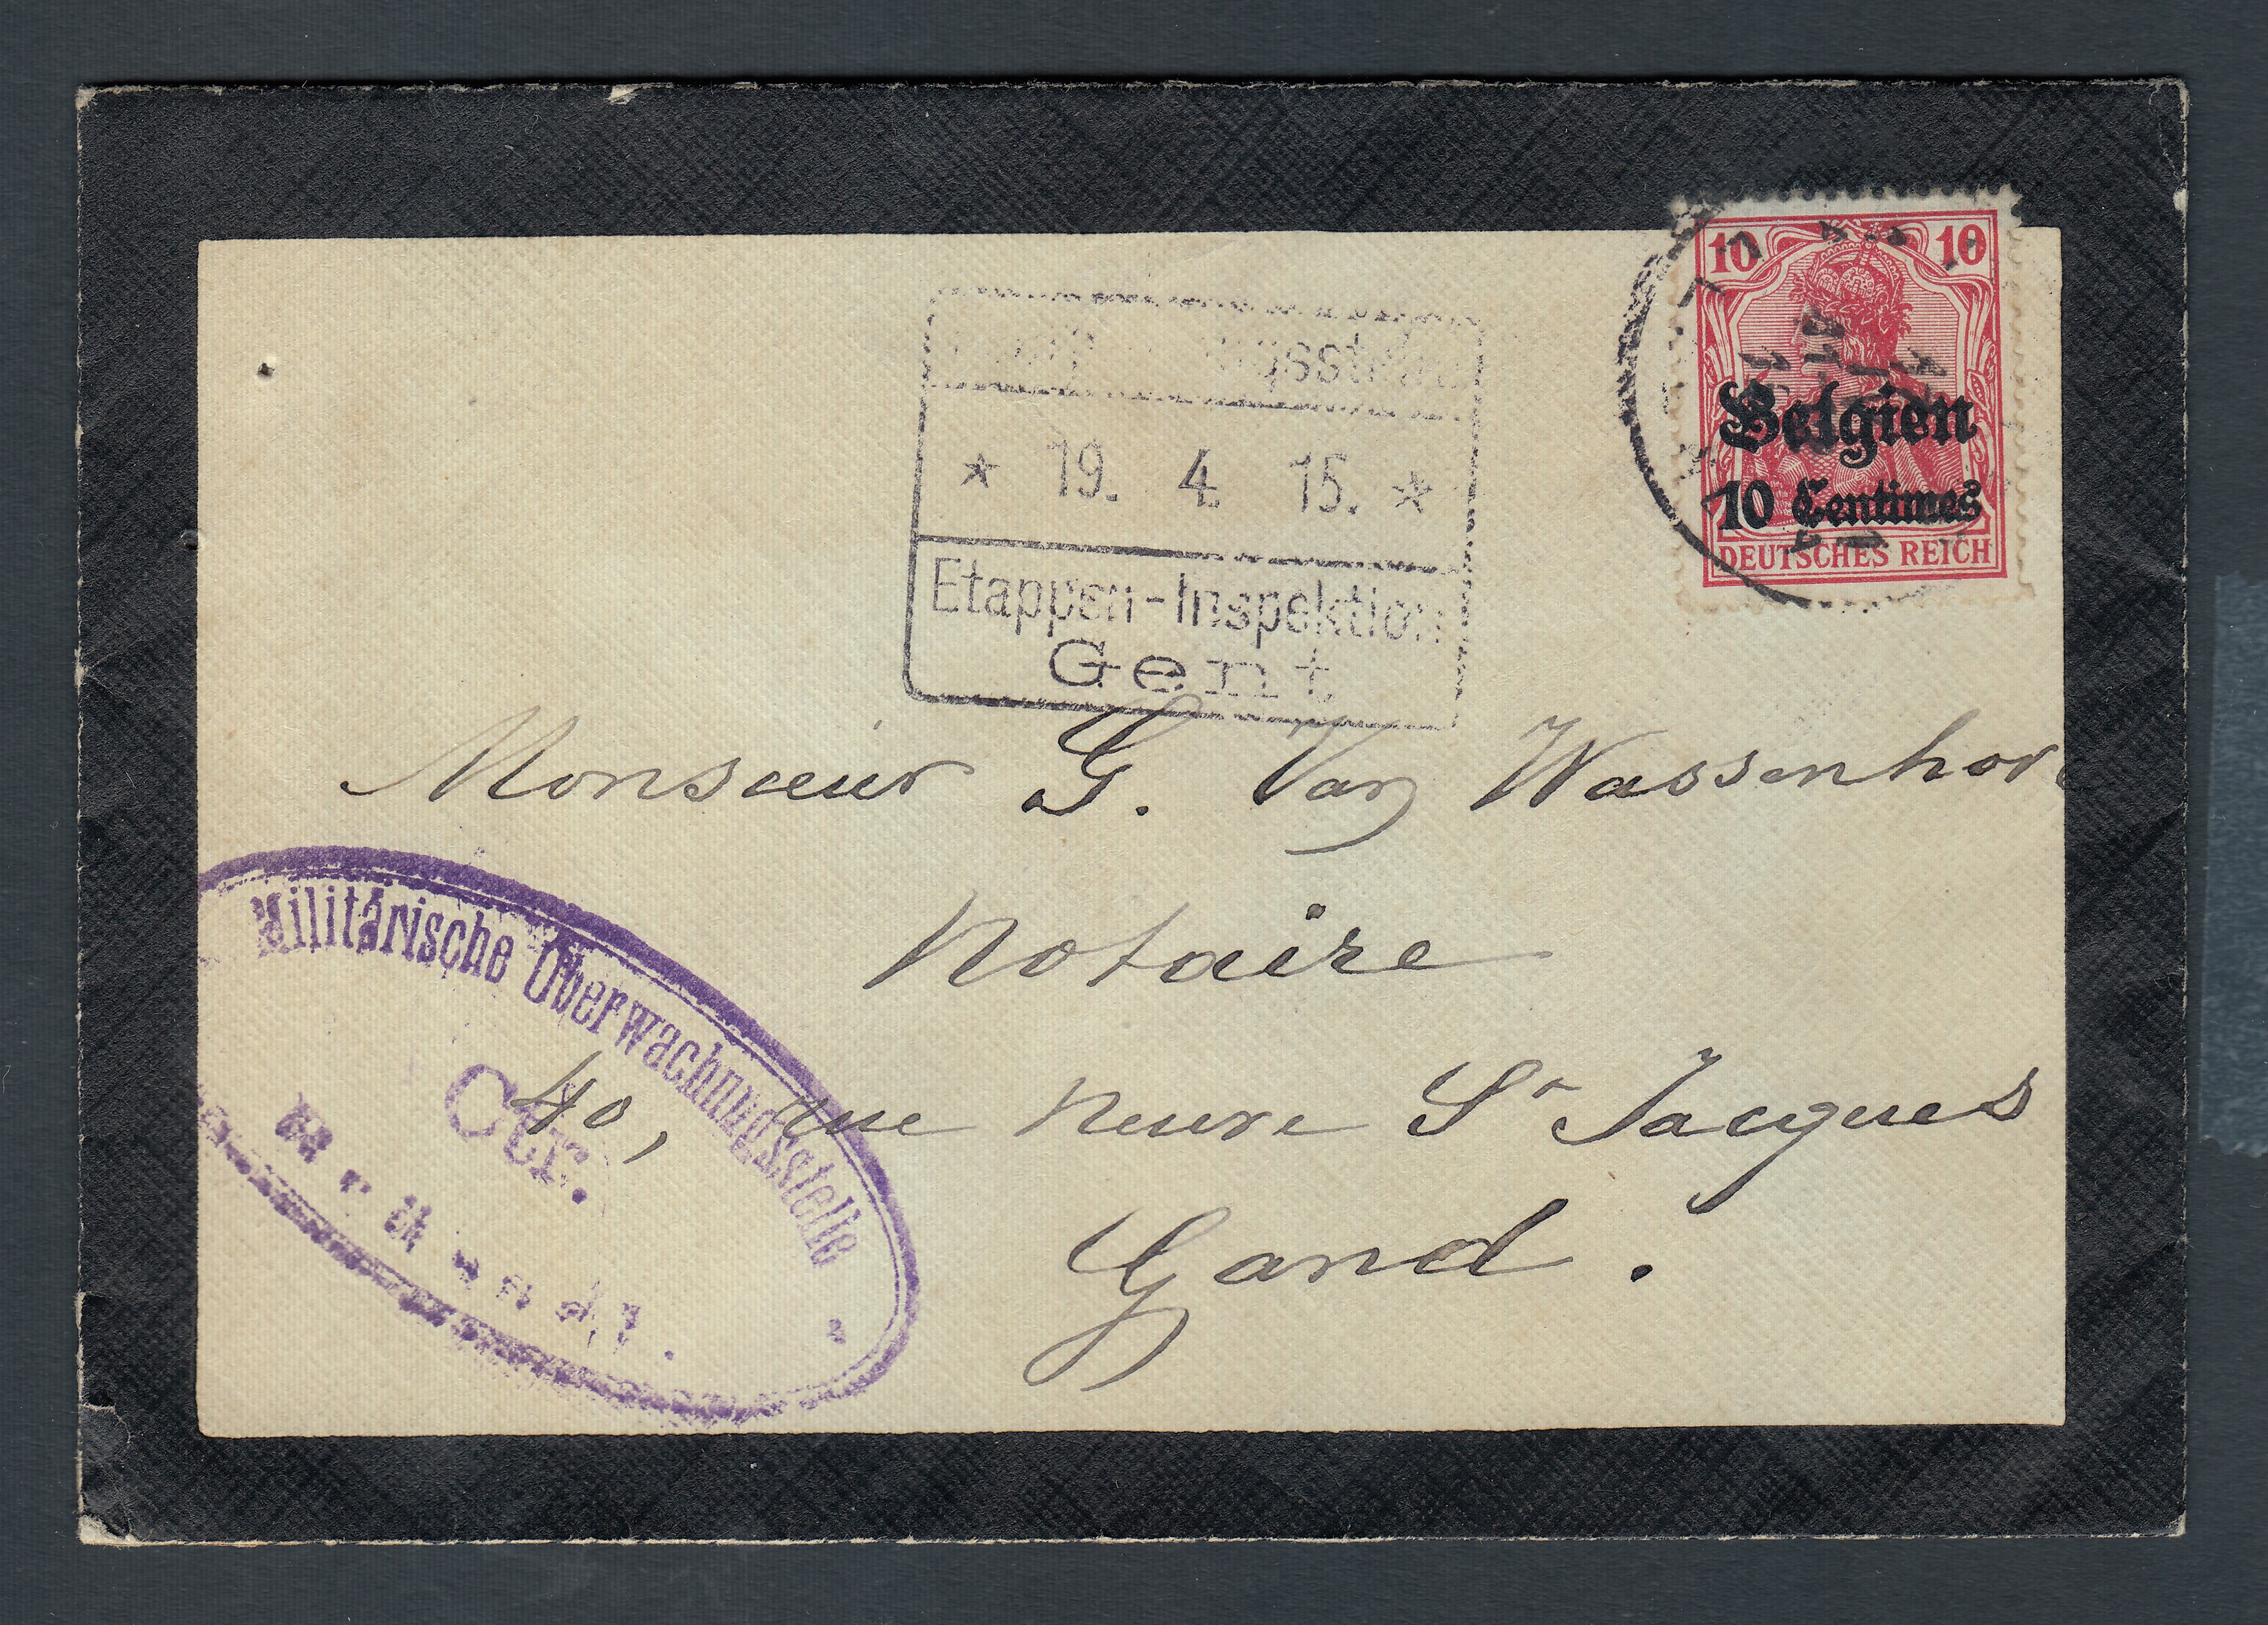 10 10
Belgien
10 Centimes
DEUTSCHES REICH
* 19. 4. 15. *
Etappen-Inspektion
Gent
Monsieur G. Van Wassenhove
Notaire
40, rue neuve St Jacques
Gand.
Militärische Überwachungsstelle
Ctr.